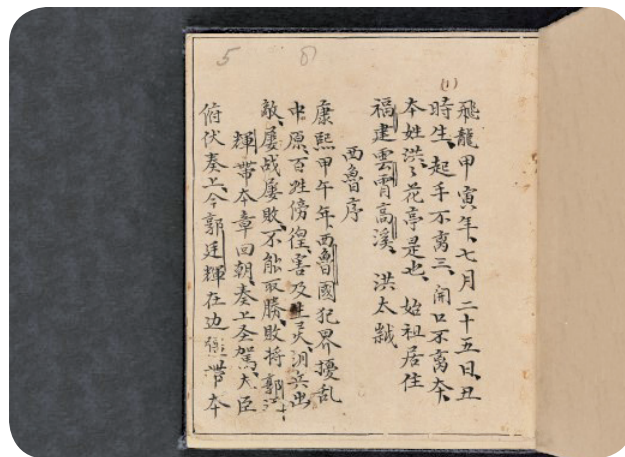 5
(1)
飛龍甲寅年、七月二十五日、丑
時生、起手不离三、開口不离本、
本姓洪、花亭是也、始祖居住
福建雲霄高溪、洪太
西魯序
康熙甲午年、西魯國犯界擾乱
中原、百姓傍徨、害及生灵、兵出
敵、屢战屢敗、不能取勝、敗将郭
輝帶本章回朝、奏上圣駕、大臣
俯伏奏上、今郭廷輝在边帶本